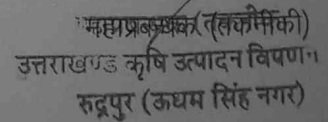 महाप्रबन्धक (तकनीकी)
उत्तराखण्ड कृषि उत्पादन विपणन
रुद्रपुर (ऊधम सिंह नगर)